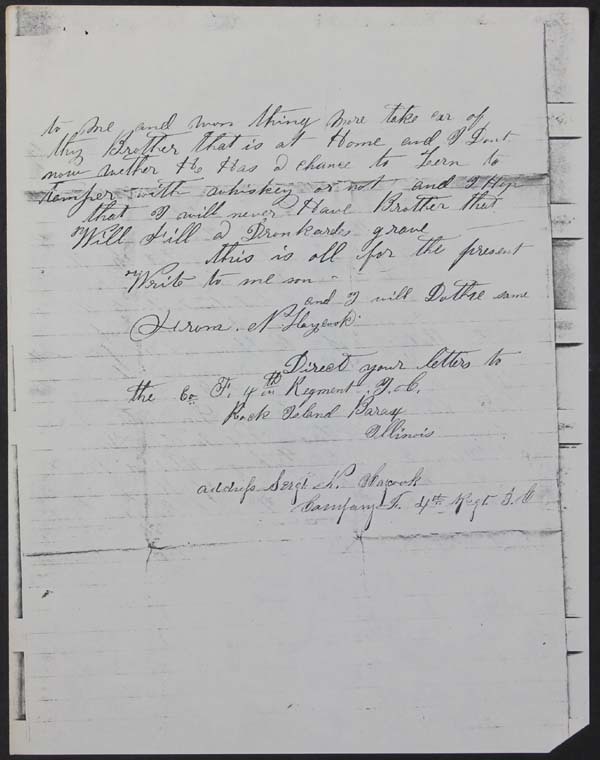 to me and won thing more take car of
thy Brother that is at Home and I Dont
now wether He Has a chance to Lern to
temper with whiskey or not and I Hop
that I will never Have Brother that
Will Fill a Dronkardes grave
this is all for the present
Write to me son
and I will Dothe same
From N Haycook
Direct your letters to
the Co F. 4th Regment I. C.
Rock Island Baracy
Illinois
address Sergt N. Haycook
Company F. 4th Regt I. C